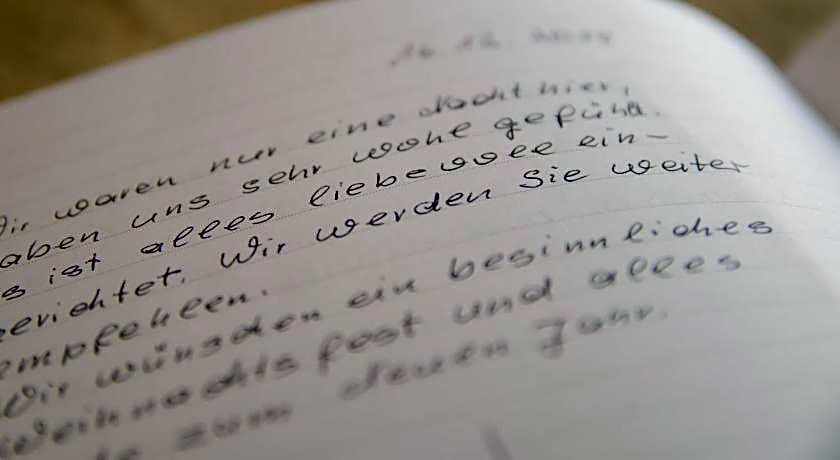 Wir waren nur eine Nacht hier,
aben uns sehr wohl gefühlt.
s ist alles liebevoll ein-
gerichtet. Wir werden Sie weiter
empfehlen.
Wir wünschen ein besinnliches
Weihnachtsfest und alles
zum neuen Jahr.